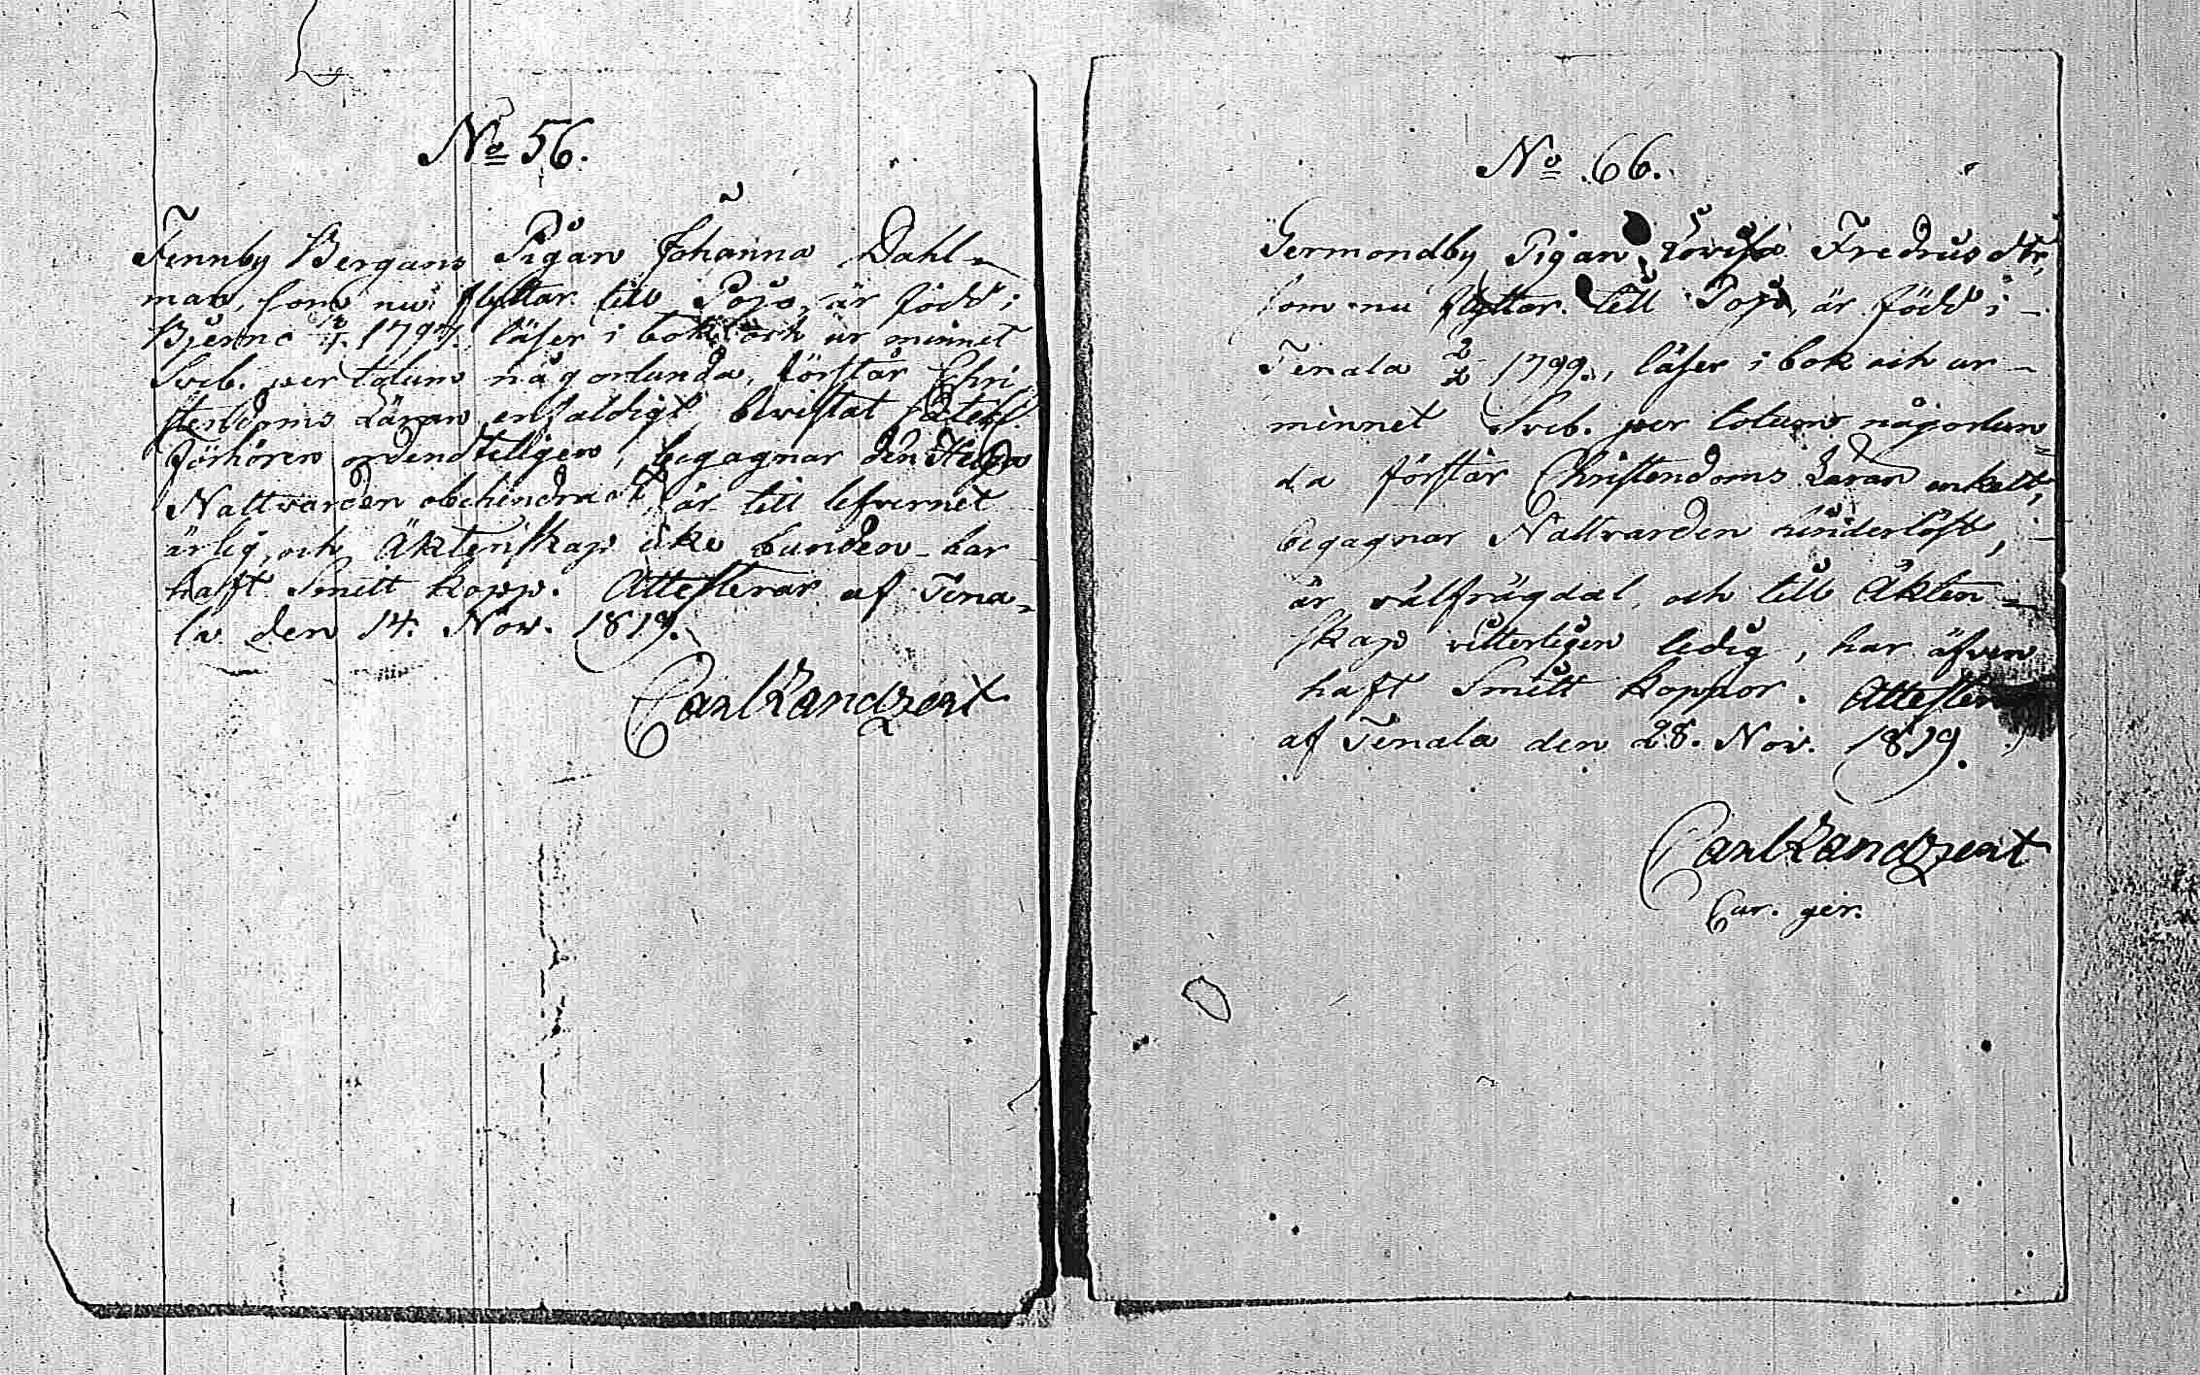 No 56.
Finnby Bergans Pigan Johanna Dahl-
man, som nu flyttar till Pojo, är född i
Bjerno 1797. läser i bok och ur minnet
Sveb. per totum någorlunda, förstår Chri
stendoms Läran enfaldigt, bevistat
förhören ordendteligen, begagnar den Helga
Nattvarden obehindradt, är till lefvernet
ärlig och Äktenskap icke bunden har
haft Smitt kopp. Attesterar af Tena-
la den 14. Nov. 1819.
Carl Landzert
No 66.
Germondby Pigan Lovisa Fredrus dtr,
som nu flyttar till Pojo, är född i
Tenala 2/2 1799, läser i bok och ur
minnet Sveb. per totum någorlun
da förstår Christendoms Läran enkelt,
begagnar Nattvarden hinderlöst,
är välfrägdat, och till Äkten-
skap vitterligen ledig, har äfven
haft Smitt koppor. Attester
af Tenala den 28. Nov. 1819.
Carl Landzert
Cur. ger.